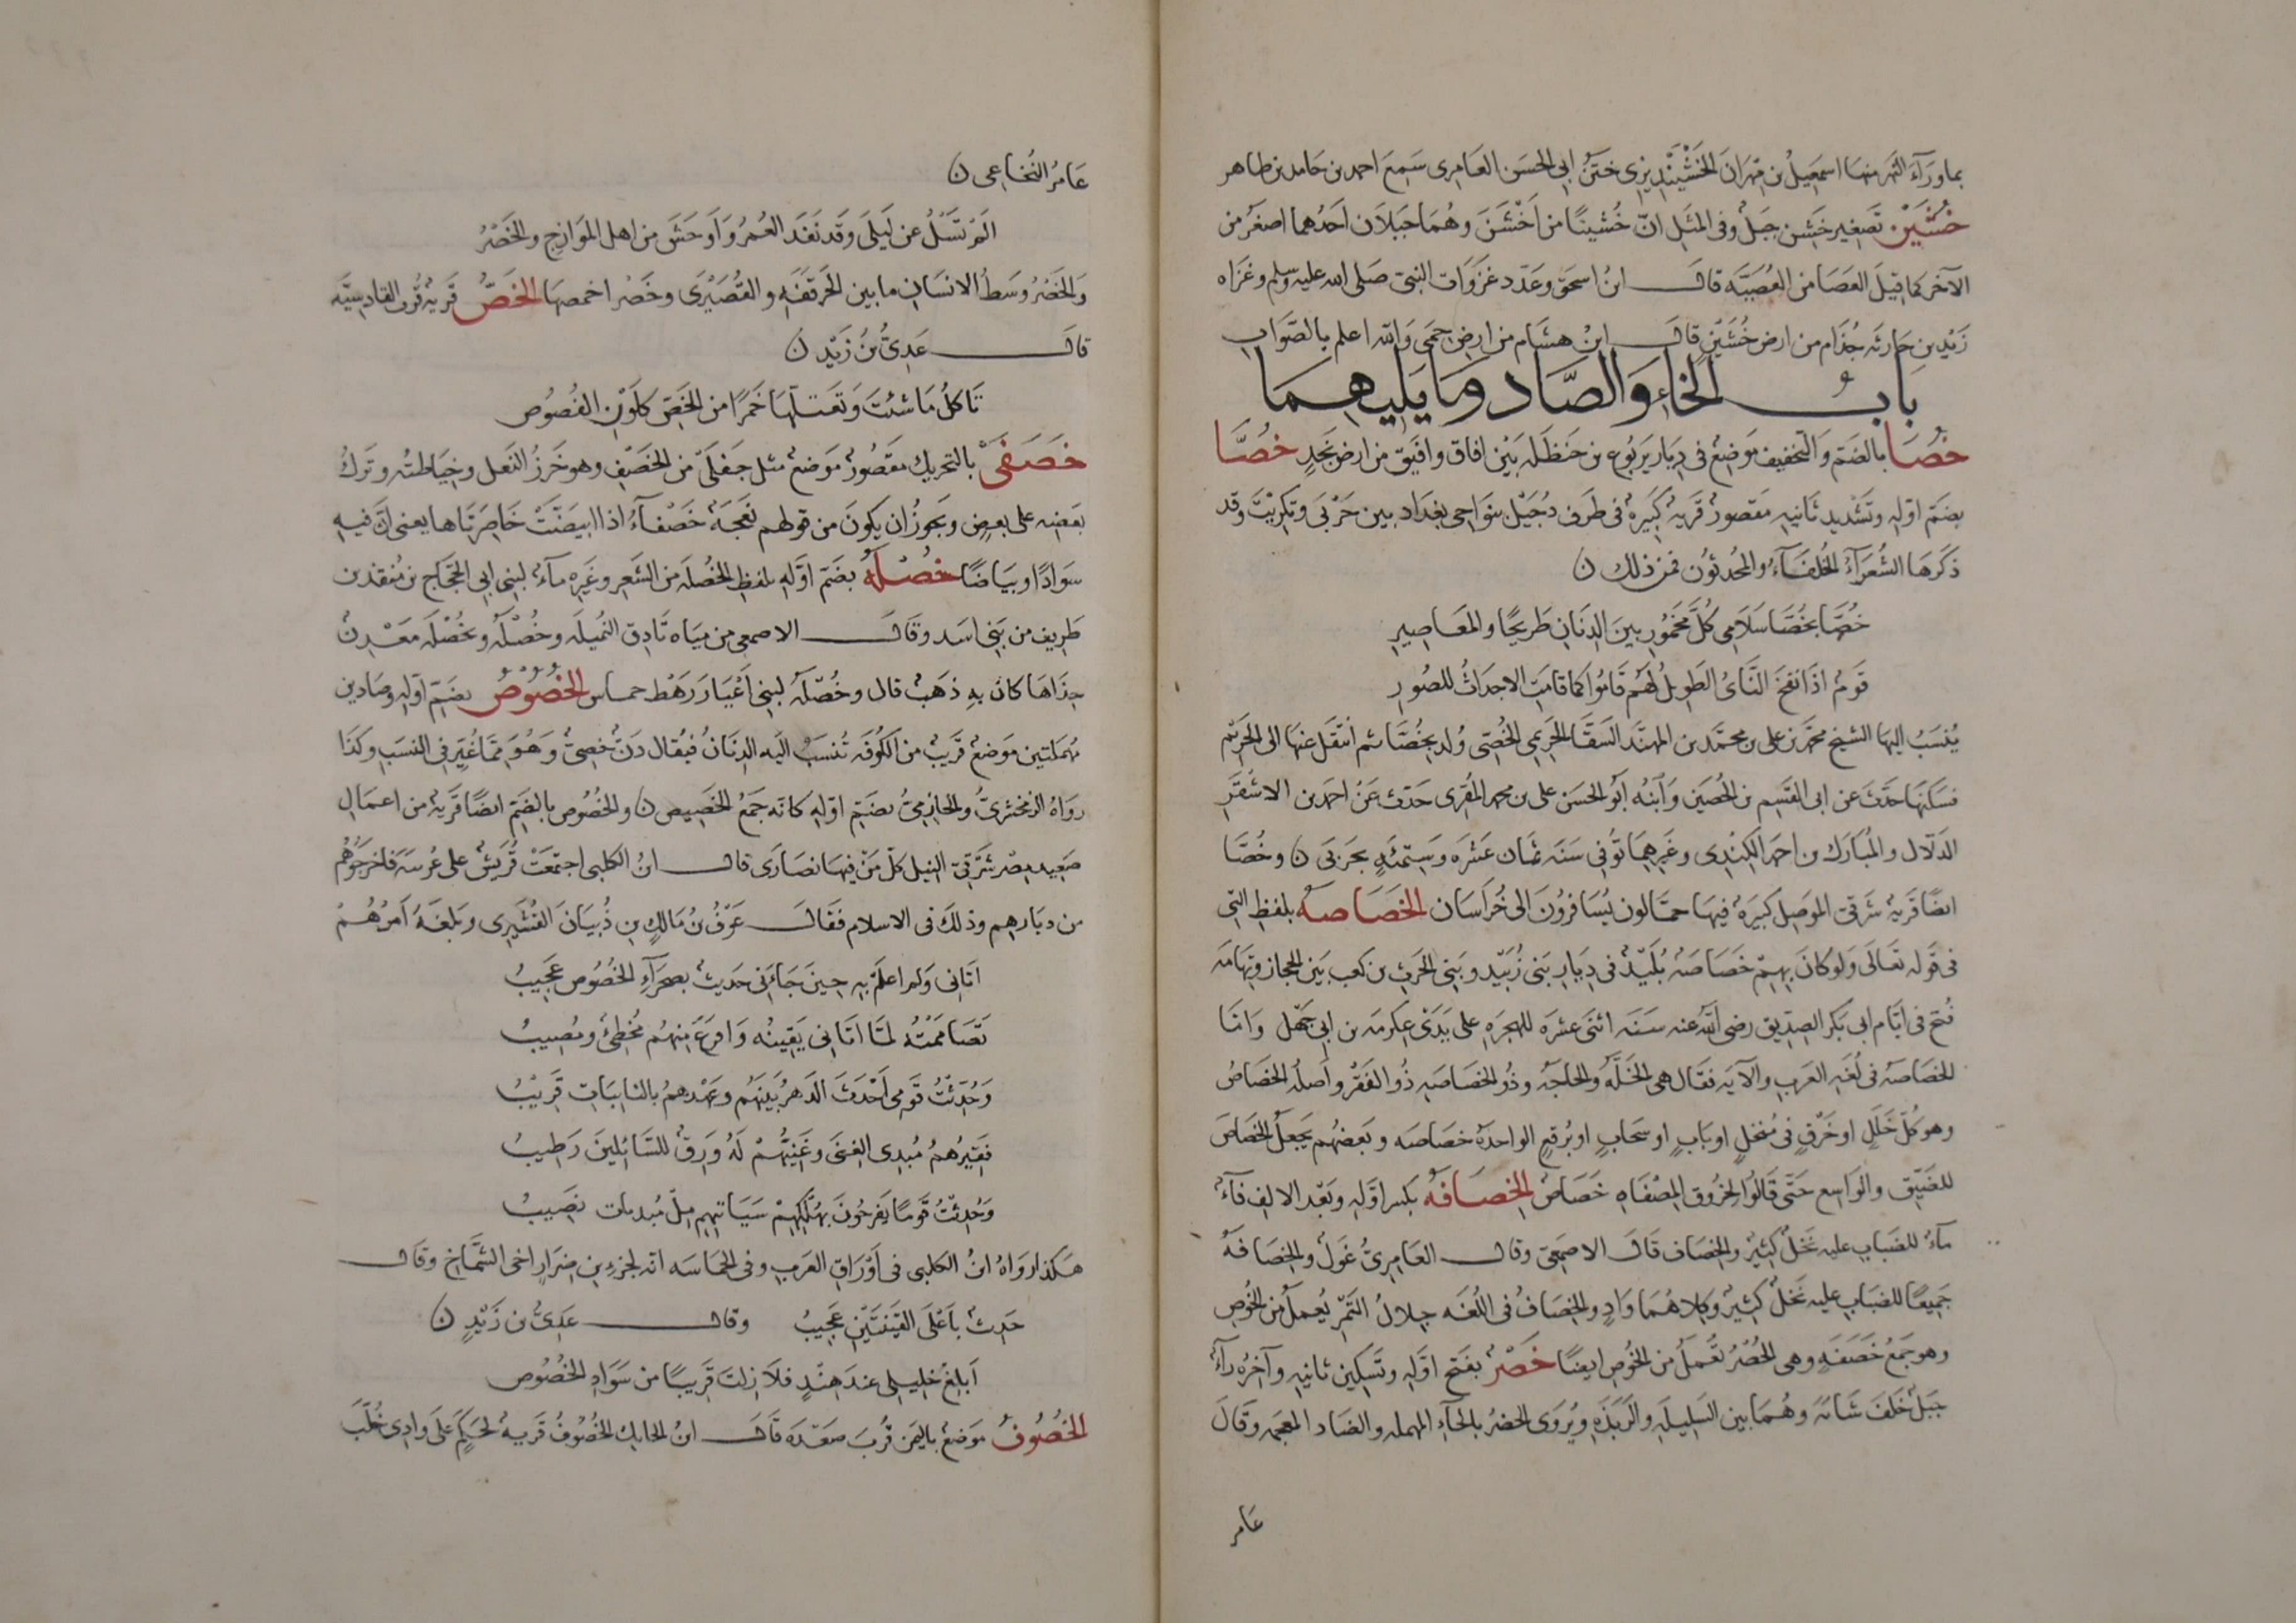 بما ورآء النهر منها اسمعيل بن مهران الخشينديزى ختن ابى الحسن العامرى سمع احمد بن حامد بن طاهر
خُشَيْن تصغير خشن جبل وفى المثل انّ خُشينًا من اَخْشَنَ وهما جبلان احدهما اصغر من
الآخر كما قيل العصا من العُصَيَّه قال ابن اسحق وعدد غزوات النبى صلى الله عليه وسلم وغزاه
زيد بن حارثه جُذام من ارض خُشَيْن قال ابن هشام من ارض حِمى والله اعلم بالصواب
باب الخاء والصاد وما يليهما
خُصَا بالضم والتخفيف موضع فى ديار يربوع بن حنظله بين افاق وافيق من ارض نجدٍ خُصَّا
بضم اوّله وتشديد ثانيه مقصور قرية كبيرة فى طرف دُجَيْل بنواحى بغداد بين حَرْبَى وتكريت وقد
ذكرها الشعرآءُ الخلفآءُ والمحدثون فمن ذلك ن
خُصَّا بخُصَّا سلامى كلَّ مخمور بين الدنان طريحًا والمعاصير
قومُ اذا نفخ الناىُ الطويل لهم قاموا كما قامت الاجداث للصور
يُنسَبُ اليها الشيخ محمد بن على بن محمد بن المهند السقا الحريمى الخُصِّى وُلد بخُصَّا ثم انتقل عنها الى الحريم
فسكنها حدّث عن ابى القسم بن الحصين وآبنُه ابو الحسن على بن محمد المقرى حدث عن احمد بن الاشقر
الدلال والمبارك بن احمد الكِنْدى وغيرهما تُوفى سنه ثمان عشره وستمئه بحربى ن وخُصَّا
ايضًا قرية شرقى الموصل كبيرة فيها حمّالون يُسافرون الى خُراسان الخَصَاصه بلفظ التى
فى قوله تعالى ولو كان بهم خَصَاصه بُليد فى ديار بنى زُبَيد وبنى الحرث بن كعب بين الحجاز وتهامه
فُتح فى ايام ابى بكر الصديق رضى الله عنه سنه اثنى عشره للهجره على يَدَىْ عكرمه بن ابى جهل وامّا
الخصاصه فى لغه العرب والآيه فقال هى الخَلَّه والحاجه وذو الخصاصه ذُو الفقر واصله الخصاصُ
وهو كلُّ خَللٍ او خَرْقٍ فى مُنخلٍ او بابٍ او سحابٍ او بُرقعٍ الواحدة خصاصه وبعضهم يجعل الخصاص
للضيّق والواسع حتّى قالوا لخروق المِصْفاه خصاصُ الخِصَافه بكسر اوّله وبعد الالف فآءُ
مآءُ للضباب عليه نخل كثير والخصاف قال الاصمعى وقال العامرىُّ غَول والخصافه
جميعًا للضباب عليه نخل كثير وكلاهما وادٍ والخصاف فى اللغه جلال التمر يُعمل من الخوص
وهو جمع خَصَفَه وهى الحُصُرُ تُعمل من الخوص ايضًا خَصْر بفتح اوّله وتسكين ثانيه وآخره رآءُ
جبل خلف شابَه وهُما بين السليله والربذه ويُروى الحضرُ بالحآءِ المهمله والضاد المعجمه وقال
عامر
عامر الخُناعى ن
الم تَسَلْ عن ليلى وقد نَفَدَ العُمرُ واَوحَشَ من اهل الموازج والخَصْرُ
والخَصْرُ وسط الانسان ما بين الحرقفه والقُصَيْرَى وخصر اخمصها الخُصّ قرية قرب القادسيّه
قال عدى بن زَيْد ن
تأكل ما شئت وتَعتلّها خمرًا من الخُصّ كلون الفُصُوص
خَصَفَى بالتحريك مقصور موضع مثل جفلَى من الخَصْفِ وهو خرز النعل وخياطته وترك
بعضه على بعضٍ ويجوز ان يكون من قولهم نعجة خَصْفآءُ اذا ابيضّتْ خاصرتاها يعنى انّ فيه
سوادًا وبياضًا خُصْلَه بضم اوّله بلفظ الخُصله من الشعر وغيره مآءُ لبنى ابى الحجاج بن مُنقذ بن
طريف من بنى اسد وقال الاصمعى من مياه ثادق النميله وخُصْلَه وبخُصْلَه مَعْدِن
حِذاها كان به ذهب قال وخُصْلَه لبنى اَعْيَا رهط حماس الخُصُوصُ بضم اوّله وصادين
مُهملتين موضع قريب من الكوفه تُنسَبُ اليه الدنان فيقال دَنٌّ خُصىٌّ وهُوَ ممّا غُيّر فى النسب وكذا
رواه الزمخشرىُّ والحازمىُّ بضم اوّله كانه جمع الخصيص ن والخُصُوص بالضم ايضًا قرية من اعمال
صعيد مصر شرقى النيل كلّ من فيها نصارى قال ابن الكلبى اجتمعتْ قُريش على عُرينه فاخرجوهم
من ديارهم وذلك فى الاسلام فقال عَوف بن مالك بن ذُبيان القُشيرى وبلغه امرُهم
اتانى ولم اعلم به حين جآءنى حديث بصحرآءِ الخُصُوص عجيبُ
تصاممتُه لمّا اتانى يَقِينُه وافرع منهم مُخطئُ ومُصيبُ
وحُدّثتُ قومى اَحْدَثَ الدهر بينهم وعهدهم بالنايبات قريبُ
فقيرهم مُبدى الغنى وغنيُّهم له ورق للسائلين رطيبُ
وحُدثتُ قومًا يفرحون بهُلكهم سياتيهم مِلْ مُبديات نصيبُ
هكذا رواه ابن الكلبى فى اَوْراقِ العرب وفى الحماسه انه لجزء بن ضِرار اخى الشمّاخ وقال
حديث باَعْلَى القُنَّتَيْن عجيبُ وقال عدىُّ بن زَيْدٍ ن
اَبلغ خليلى عند هندٍ فلا زلت قريبًا من سواد الخُصُوص
الخُصُوف موضع باليمن قُرب صعده قال ابن الحايك الخُصُوف قرية لحكم على وادى خُلَب